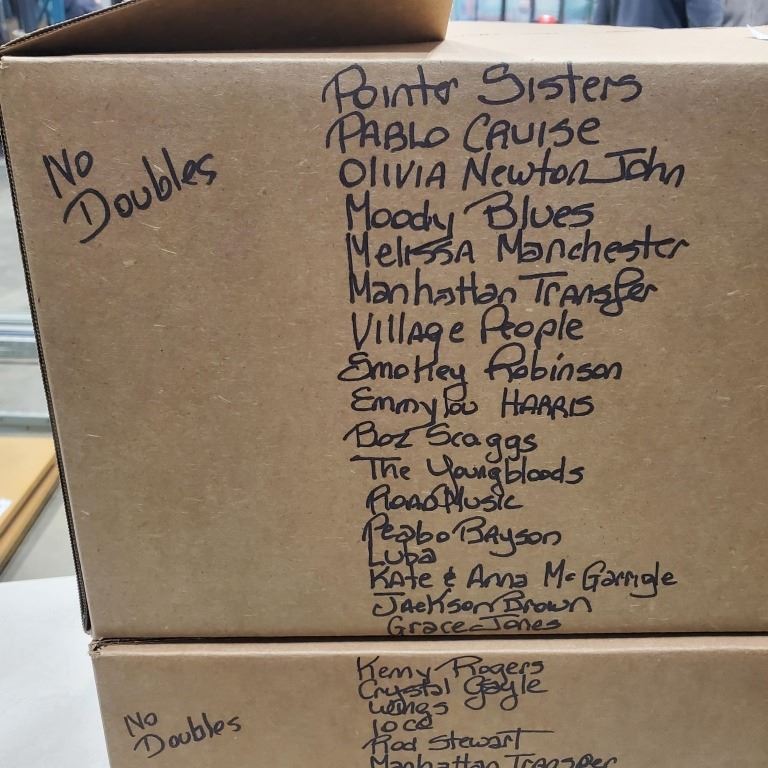 No
Doubles
Pointr Sisters
PABLO CRUISE
OlIVIA Newton John
Moody Blues
MelissA Manchester
Manhattan TRAnsfer
VillAge People
Smokey Robinson
Emmylou HARRIS
Boz Scaggs
The Youngbloods
ROADMusic
Peabo BRyson
Luba
KAte & Anna McGarrigle
JAcKson Brown
Grace Jones
No
Doubles
Kenny Rogers
Crystal Gayle
wings
10 cc
Rod Stewart
Manhattan Transfer